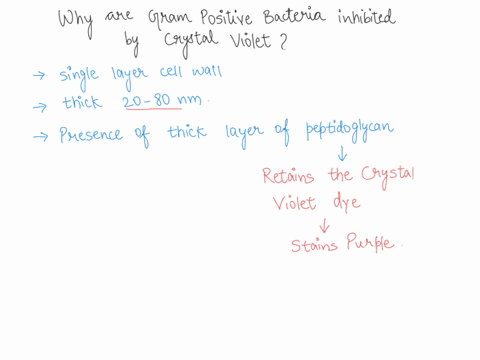 Why are Gram Positive Bacteria inhibited
by Crystal Violet ?
→ single layer cell wall
→ thick 20-80 nm.
→ Presence of thick layer of peptidoglycan
↓
Retains the Crystal
Violet dye
↓
Stains Purple.